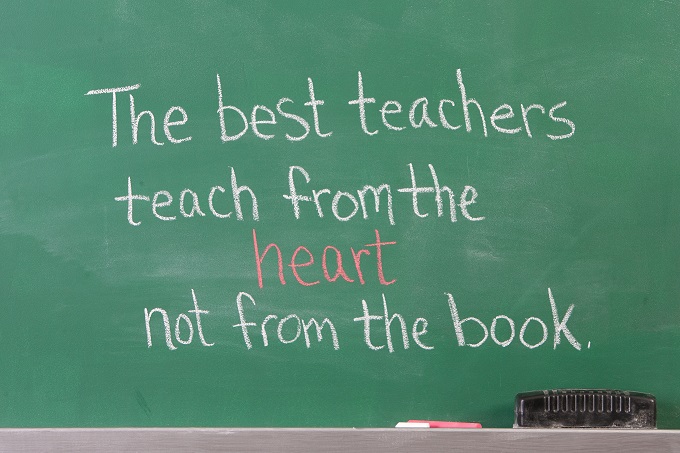 The best teachers
teach from the
heart
not from the book.